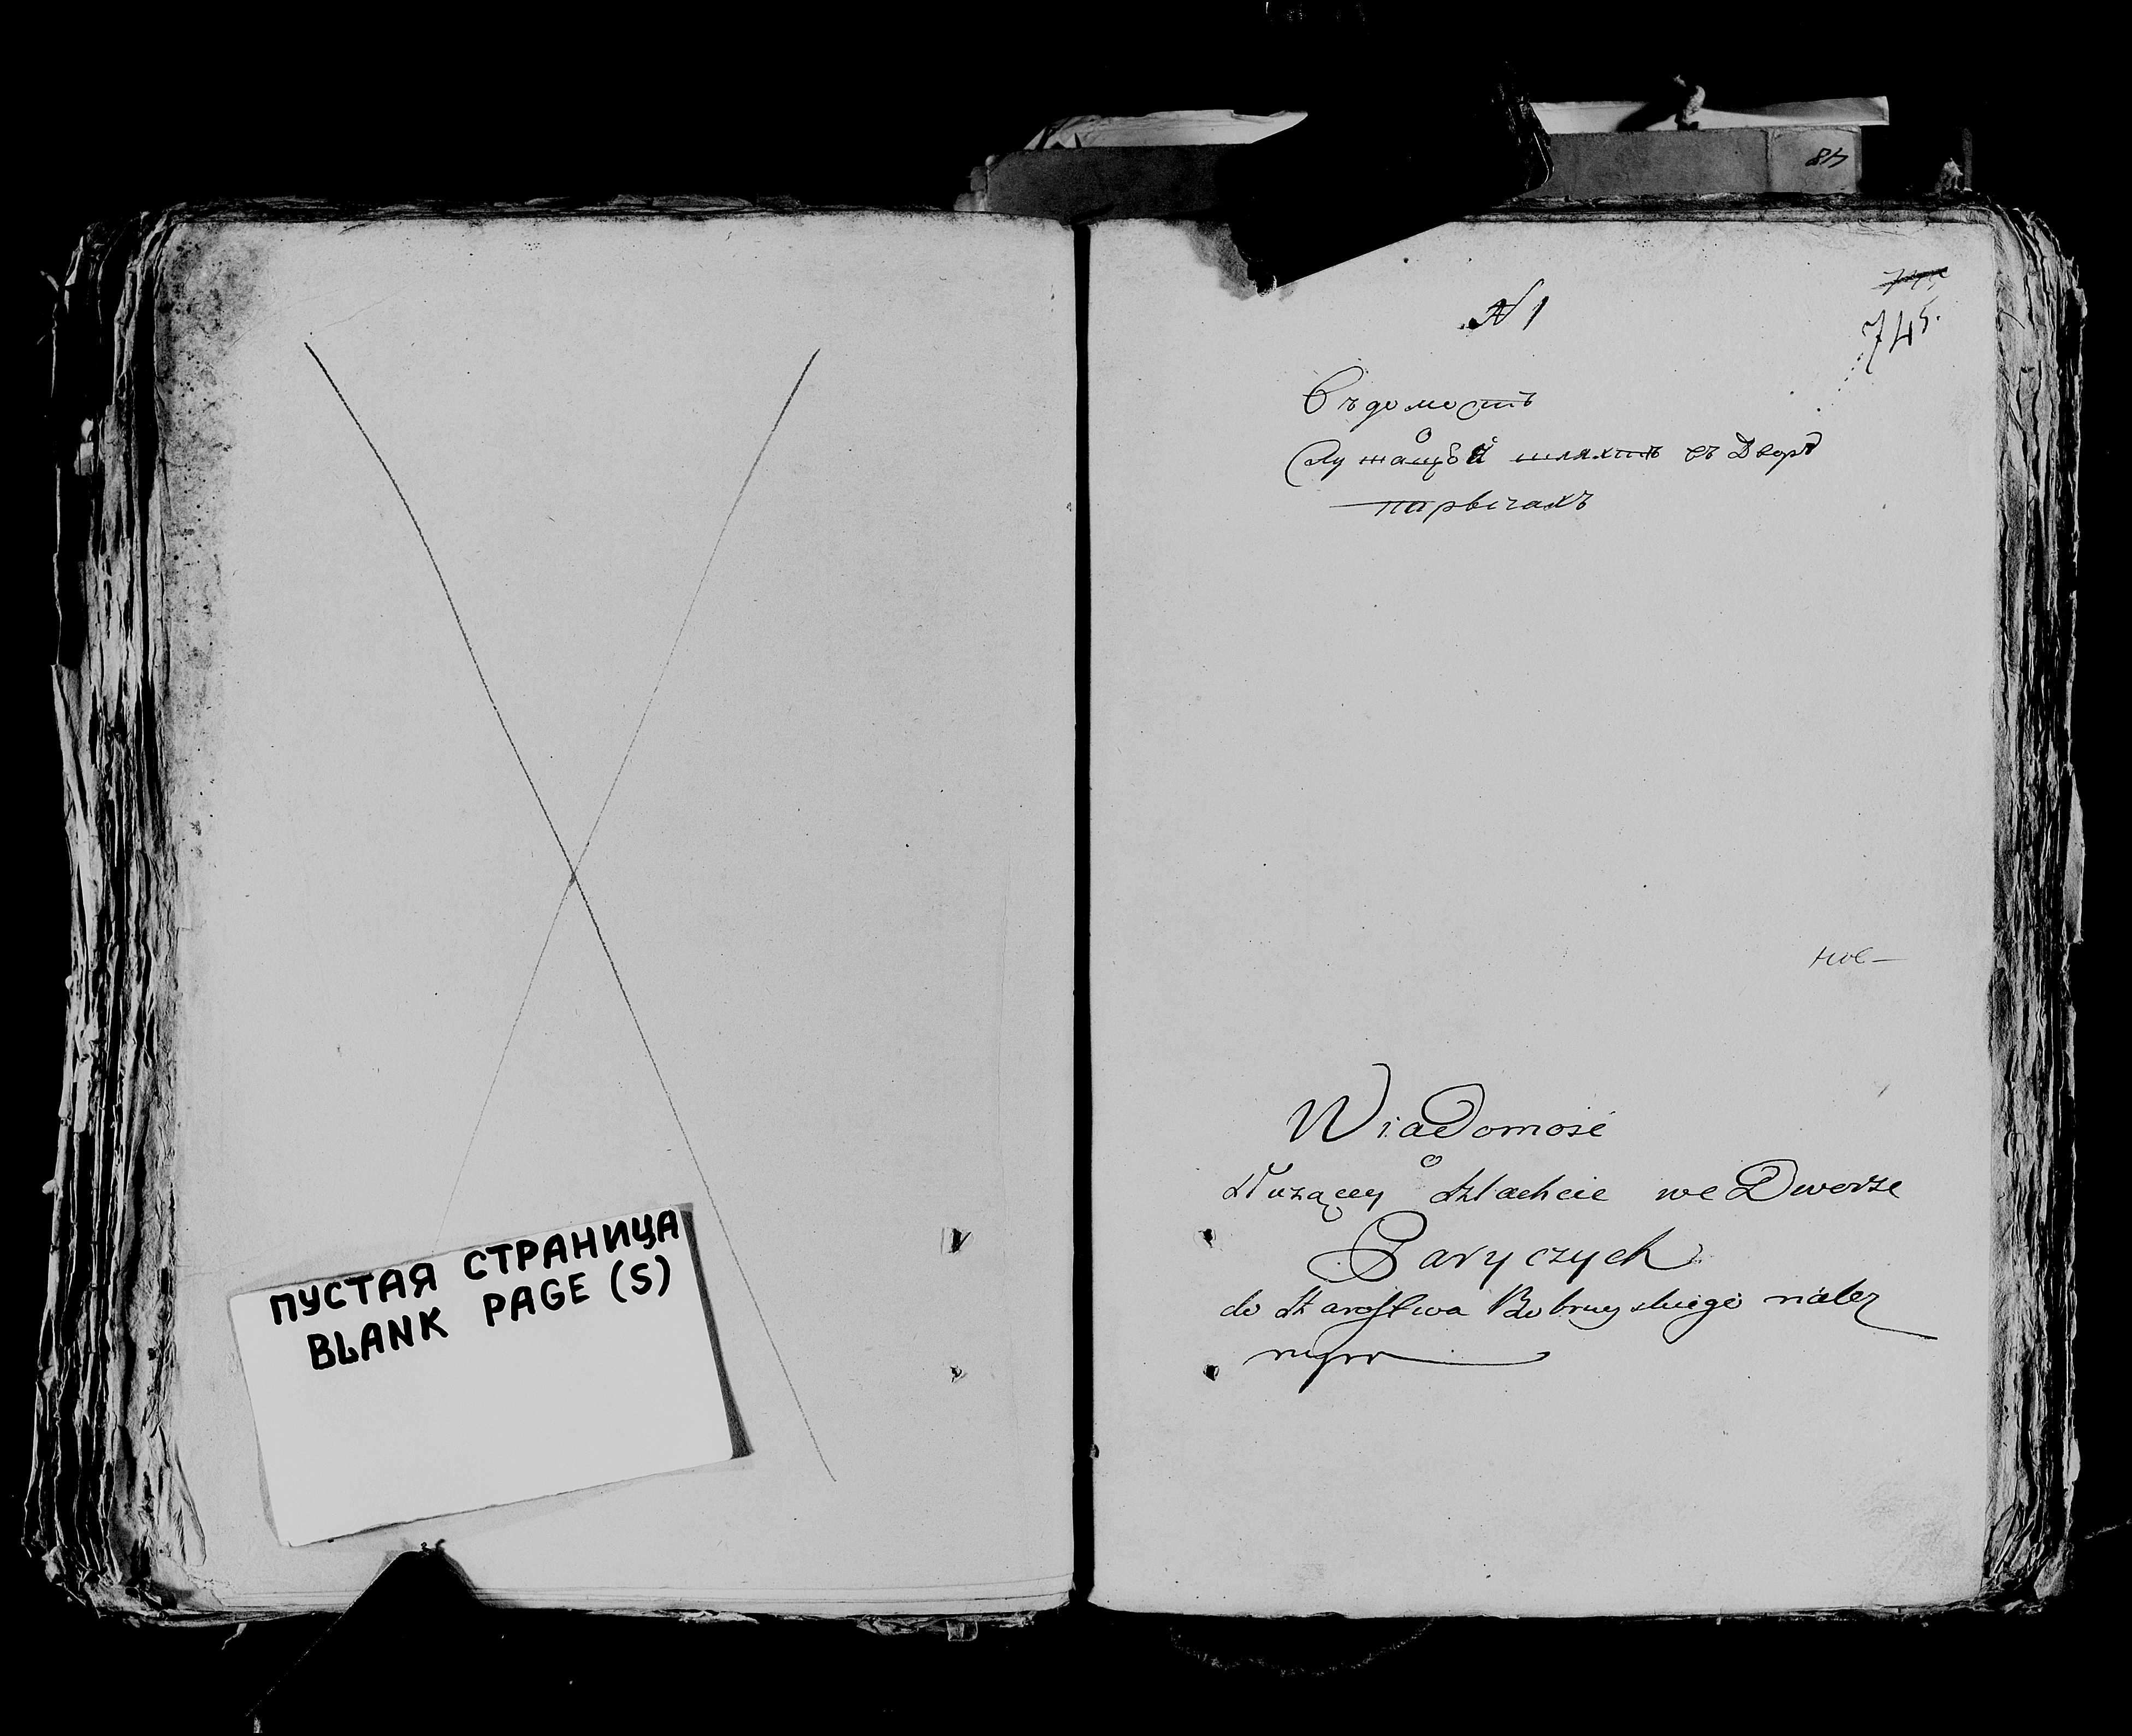 ПУСТАЯ СТРАНИЦА
BLANK PAGE (S)
48
N 1
745.
Вѣдомость
о
Служащей шляхтѣ въ Дворѣ
парычахъ
Wiadomość
o
Służącey Szlachcie we Dworze
Paryczych
do Starostwa Bobruyskiego należ
nym